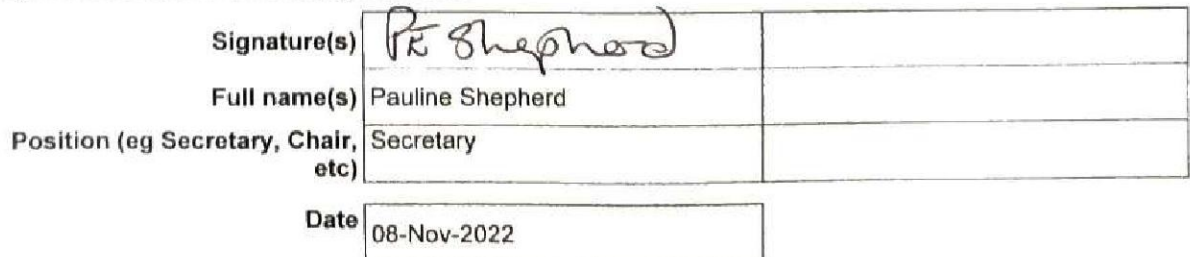 Signature(s) PE Shepherd
Full name(s) Pauline Shepherd
Position (eg Secretary, Chair, Secretary
etc)
Date 08-Nov-2022